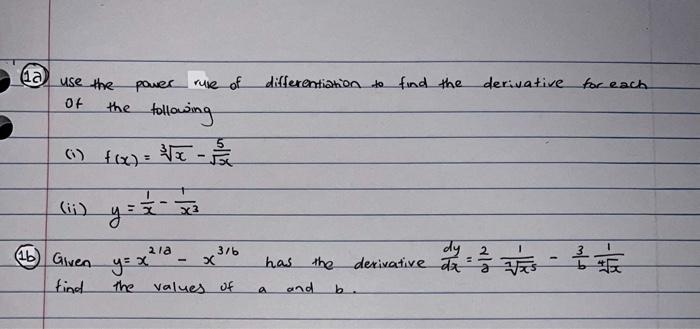 1a) use the power rule of differentiation to find the derivative for each
of the following
(i) f(x) = ∛x - 5/√x
(ii) y = 1/x - 1/x³
1b) Given y = x^{2/a} - x^{3/b} has the derivative dy/dx = 2/a 1/⁷√x⁵ - 3/b 1/⁴√x
find the values of a and b.